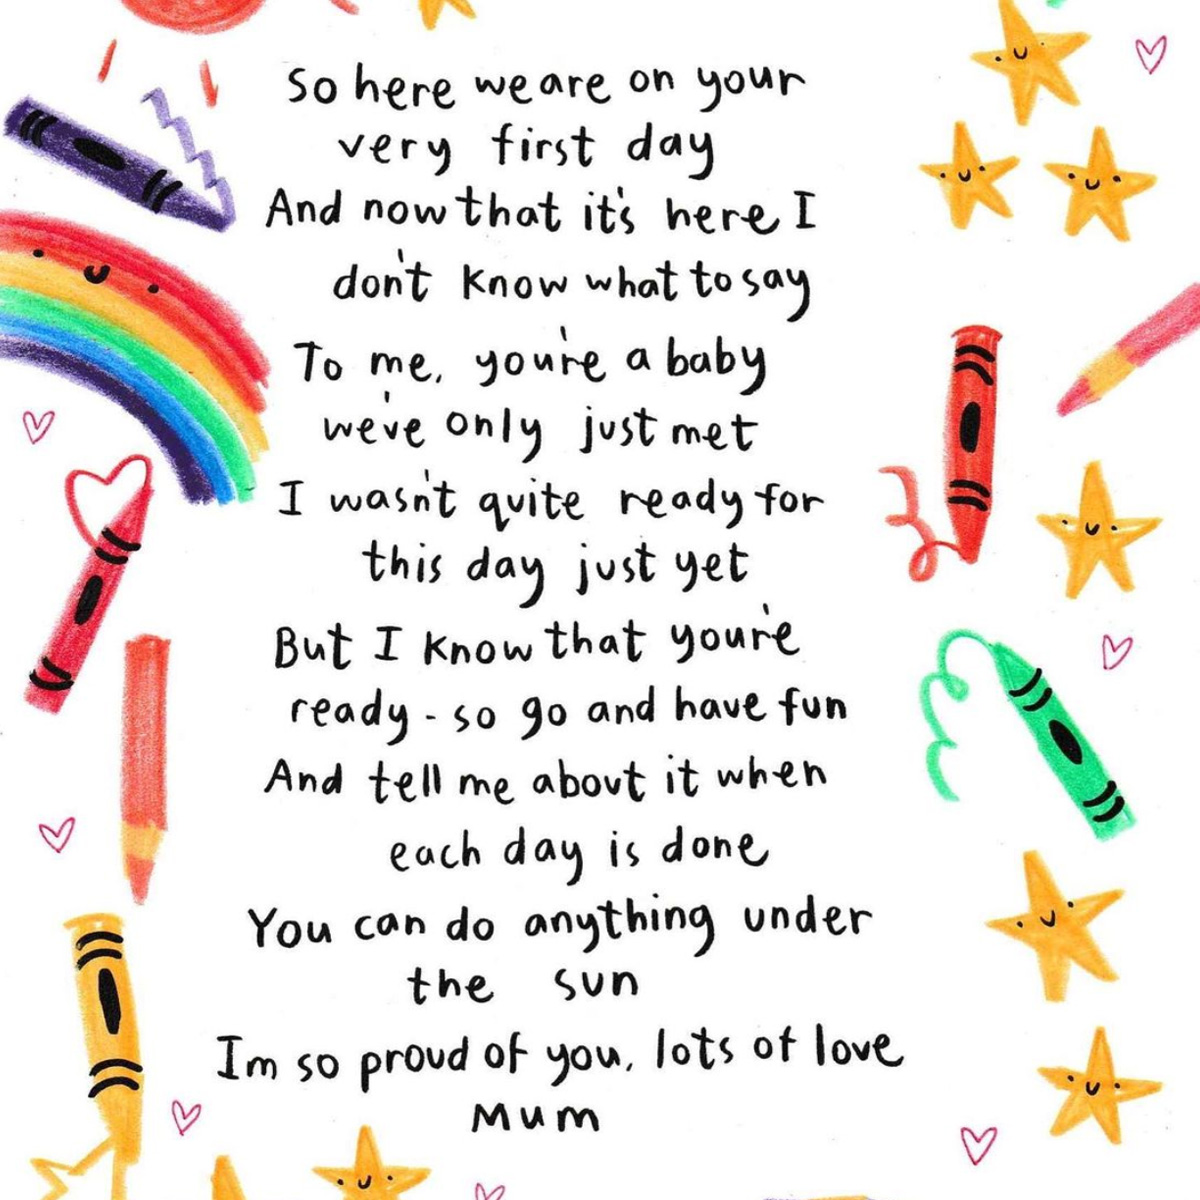 So here we are on your
very first day
And now that it's here I
don't know what to say
To me, you're a baby
we've only just met
I wasn't quite ready for
this day just yet
But I know that you're
ready - so go and have fun
And tell me about it when
each day is done
You can do anything under
the sun
Im so proud of you, lots of love
Mum